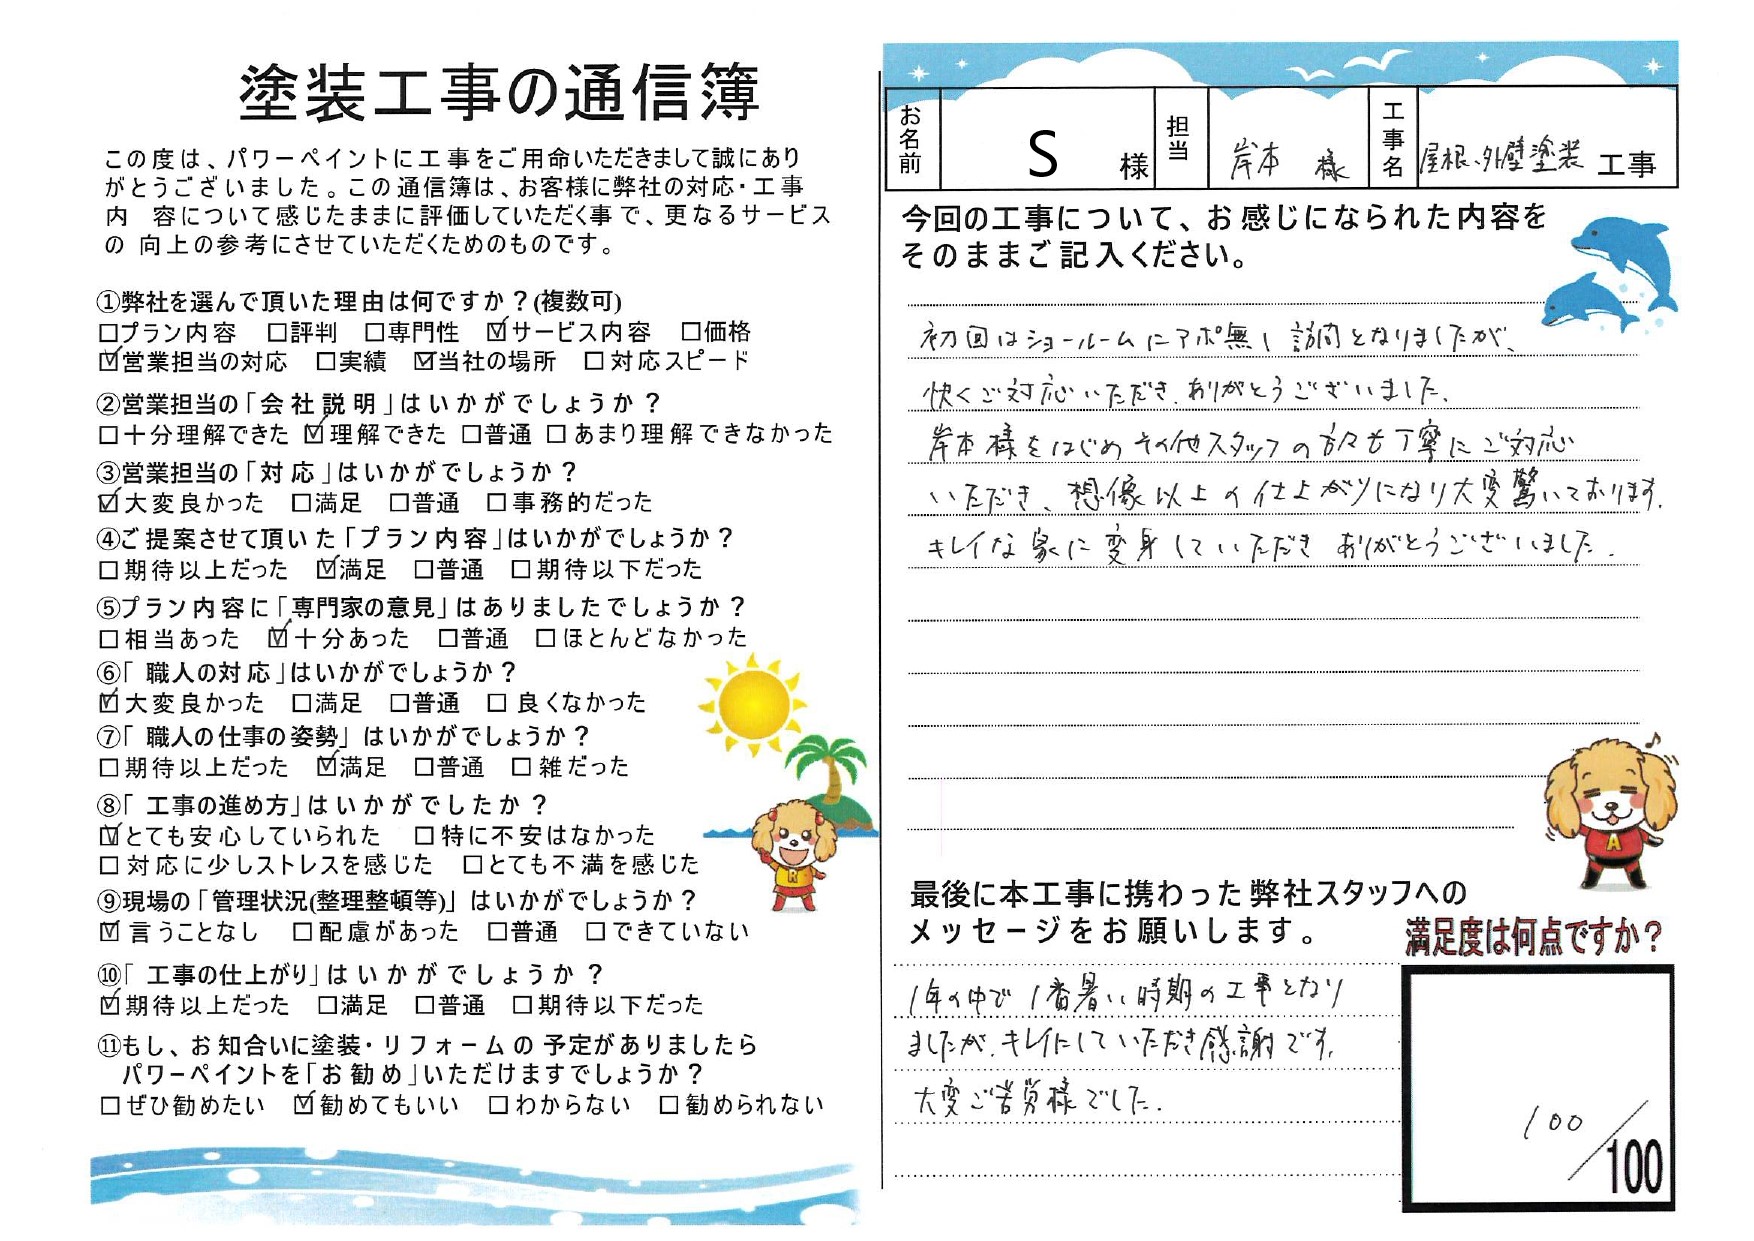 塗装工事の通信簿
この度は、パワーペイントに工事をご用命いただきまして誠にあり
がとうございました。この通信簿は、お客様に弊社の対応・工事
内 容について感じたままに評価していただく事で、更なるサービス
の 向上の参考にさせていただくためのものです。
①弊社を選んで頂いた理由は何ですか？(複数可)
□プラン内容 □評判 □専門性 ☑サービス内容 □価格
☑営業担当の対応 □実績 ☑当社の場所 □対応スピード
②営業担当の「会社説明」はいかがでしょうか？
□十分理解できた ☑理解できた □普通 □あまり理解できなかった
③営業担当の「対応」はいかがでしょうか？
☑大変良かった □満足 □普通 □事務的だった
④ご提案させて頂いた「プラン内容」はいかがでしょうか？
□期待以上だった ☑満足 □普通 □期待以下だった
⑤プラン内容に「専門家の意見」はありましたでしょうか？
□相当あった ☑十分あった □普通 □ほとんどなかった
⑥「 職人の対応」はいかがでしょうか？
☑大変良かった □満足 □普通 □良くなかった
⑦「 職人の仕事の姿勢」はいかがでしょうか？
□期待以上だった ☑満足 □普通 □雑だった
⑧「 工事の進め方」はいかがでしたか？
☑とても安心していられた □特に不安はなかった
□対応に少しストレスを感じた □とても不満を感じた
⑨現場の「管理状況(整理整頓等)」はいかがでしょうか？
☑言うことなし □配慮があった □普通 □できていない
⑩「 工事の仕上がり」はいかがでしょうか？
☑期待以上だった □満足 □普通 □期待以下だった
⑪もし、お知合いに塗装・リフォームの予定がありましたら
パワーペイントを「お勧め」いただけますでしょうか？
□ぜひ勧めたい ☑勧めてもいい □わからない □勧められない
R
お名前 S 様 担当 岸本 様 工事名 屋根、外壁塗装 工事
今回の工事について、お感じになられた内容を
そのままご記入ください。
初回はショールームにアポ無し訪問となりましたが、
快くご対応いただき、ありがとうございました。
岸本様をはじめその他スタッフの方々も丁寧にご対応
いただき、想像以上の仕上がりになり大変驚いております。
キレイな家に変身していただきありがとうございました。
A
最後に本工事に携わった弊社スタッフへの
メッセージをお願いします。
1年の中で1番暑い時期の工事となり
ましたが、キレイにしていただき感謝です。
大変ご苦労様でした。
満足度は何点ですか？
100/100